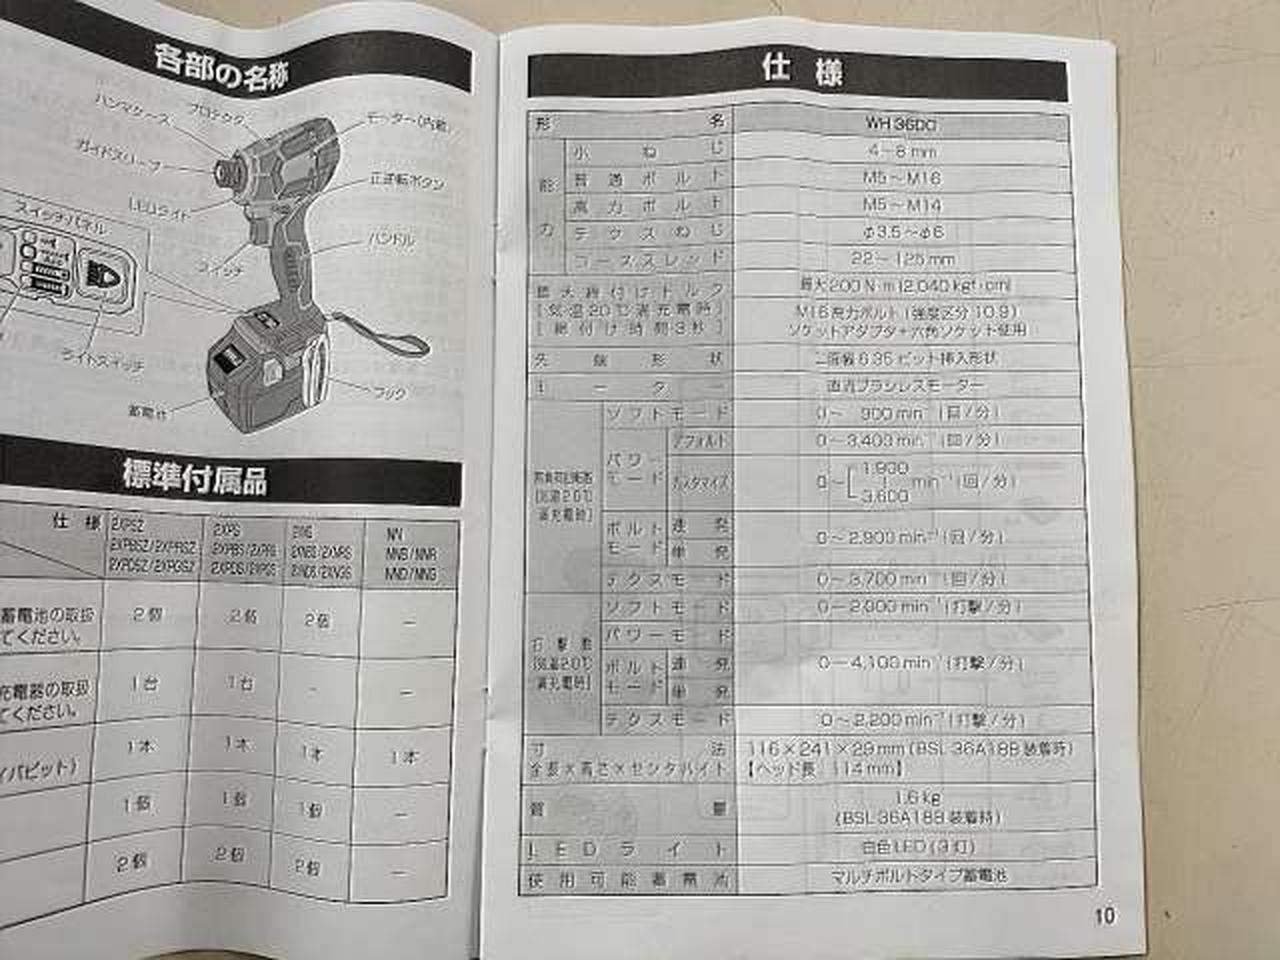 各部の名称
ハンマケース
プロテクタ
モーター(内蔵)
ガイドスリーブ
正逆転ボタン
LEDライト
スイッチパネル
ハンドル
スイッチ
ライトスイッチ
フック
蓄電池
標準付属品
仕様
2XPSZ
2XPBSZ/2XPRSZ
2XPDSZ/2XPGSZ
NN
NNB/NNR
NND/NNG
蓄電池の取扱
てください。
2個 2個 2個 −
充電器の取扱
てください。
1台 1台 − −
イバビット)
1本 1本 1本 1本
1個 1個 1個 −
2個 2個 2個 −
仕様
形名 WH 36DC
能力
小ねじ 4~8 mm
普通ボルト M5~M16
高力ボルト M5~M14
テクスねじ φ3.5~φ6
コーススレッド 22~125 mm
最大締付けトルク
[気温20℃満充電時]
[締付け時間3秒]
最大200 N·m {2,040 kgf·cm}
M16高力ボルト(強度区分10.9)
ソケットアダプタ+六角ソケット使用
先端形状 二面幅6.35ビット挿入形状
モーター 直流ブラシレスモーター
無負荷回転数
[気温20℃
満充電時]
ソフトモード 0~ 900 min⁻¹{回/分}
パワーモード
デフォルト 0~3,400 min⁻¹{回/分}
カスタマイズ 0~ 1,900 ~ 3,600 min⁻¹{回/分}
ボルトモード
連発
単発
0~2,900 min⁻¹{回/分}
テクスモード 0~3,700 min⁻¹{回/分}
打撃数
[気温20℃
満充電時]
ソフトモード 0~2,000 min⁻¹{打撃/分}
パワーモード
ボルトモード
連発
単発
0~4,100 min⁻¹{打撃/分}
テクスモード 0~2,200 min⁻¹{打撃/分}
寸法
全長×高さ×センタハイト
116×241×29 mm (BSL 36A18B 装着時)
【ヘッド長 114 mm】
質量
1.6 kg
(BSL 36A18B 装着時)
LEDライト 白色LED(3灯)
使用可能蓄電池 マルチボルトタイプ蓄電池
10